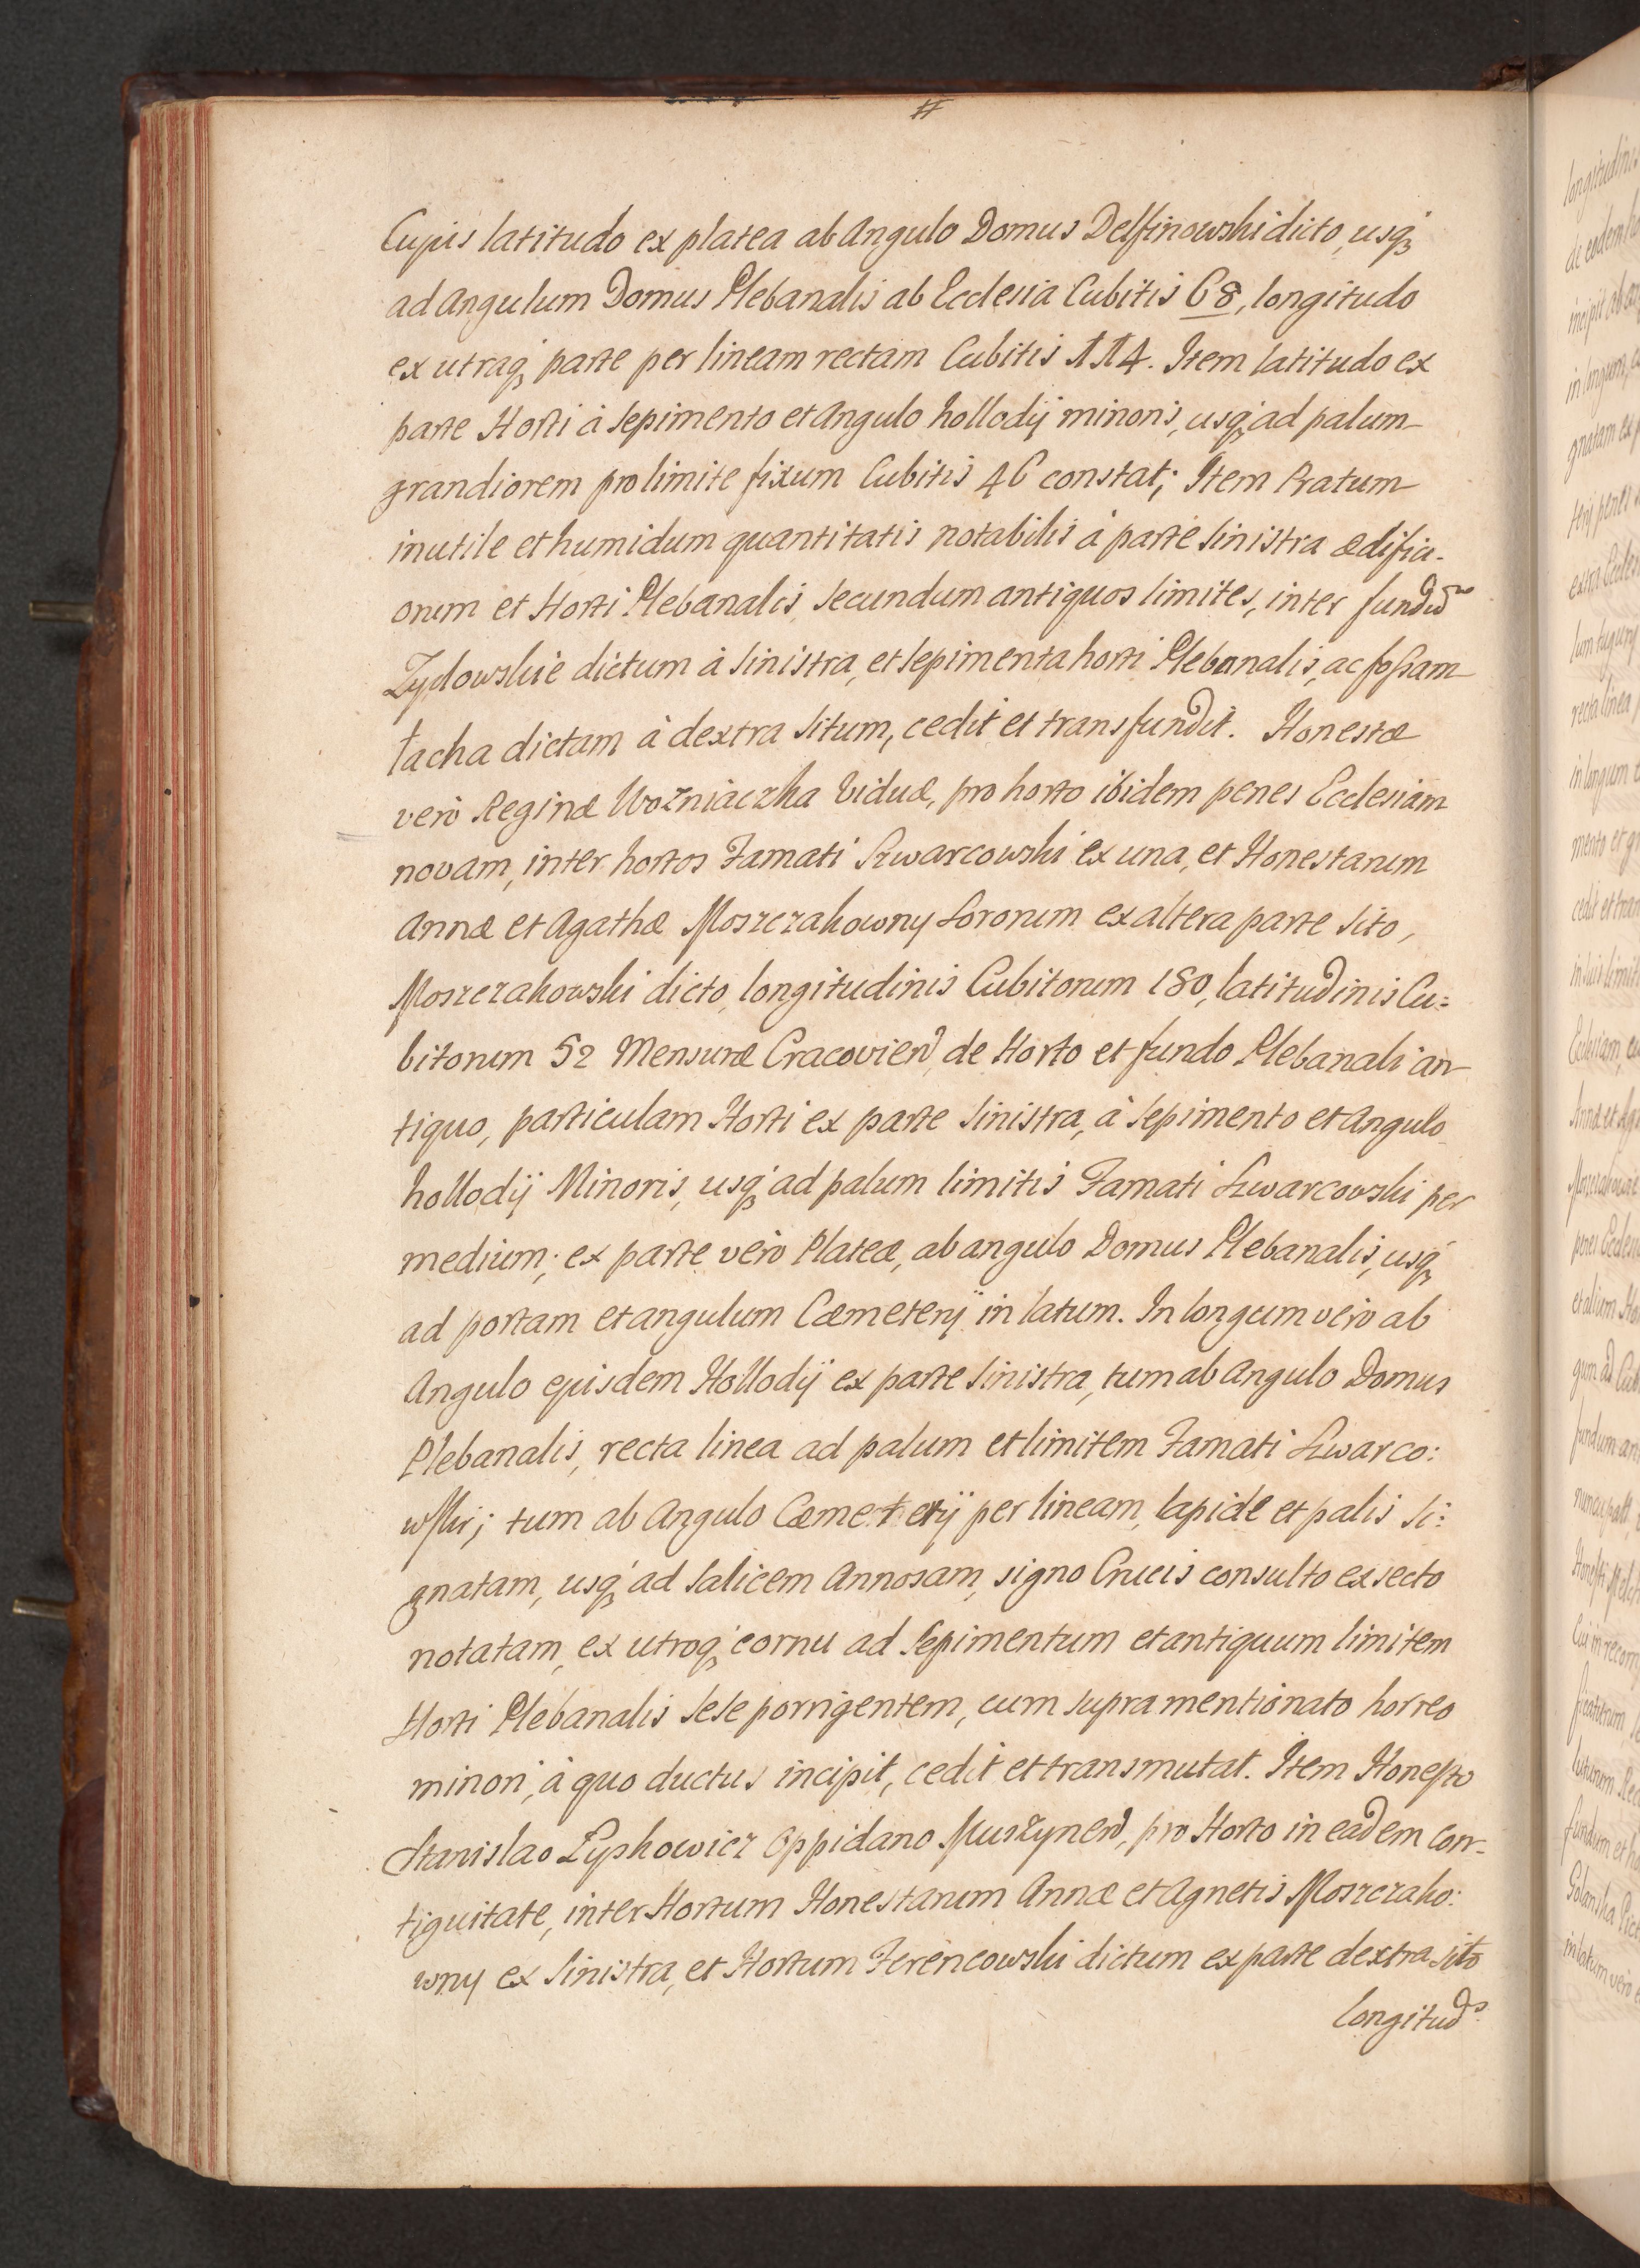 Cujus latitudo ex platea ab Angulo Domus Delfinowski dicto, usq3
ad Angulum Domus Plebanalis ab Ecclesia Cubitis 68, longitudo
ex utraq3 parte per lineam rectam Cubitis 114. Item latitudo ex
parte Horti à sepimento et Angulo hollodij minoris, usq3 ad palum
grandiorem pro limite fixum Cubitis 46 constat; Item Pratum
inutile et humidum quantitatis notabilis à parte sinistra ædifici-
orum et Horti Plebanalis, secundum antiquos limites, inter fundũ
Zydowskie dictum à sinistra, et sepimenta horti Plebanalis, ac fossam
łacha dictam à dextra situm, cedit et transfundit. Honestæ
verò Reginæ Wozniaczka Viduæ, pro horto ibidem penes Ecclesiam
novam, inter hortos Famati Szwarcowski ex una, et Honestarum
Annæ et Agathæ Moszczakowny Sororum ex altera parte sito,
Moszczakowski dicto, longitudinis Cubitorum 180, latitudinis Cu:
bitorum 52 Mensuræ Cracovien, de Horto et fundo Plebanali an-
tiquo, particulam Horti ex parte sinistra, à sepimento et Angulo
hollodij Minoris, usq3 ad palum limitis Famati Szwarcowski per
medium; ex parte verò Plateæ, ab angulo Domus Plebanalis, usq3
ad portam et angulum Cæmeterij in latum. In longum verò ab
Angulo ejusdem Hollodij ex parte sinistra, tum ab Angulo Domus
Plebanalis, recta linea ad palum et limitem Famati Szwarco:
wski; tum ab Angulo Cæmeterij per lineam, lapide et palis si:
gnatam, usq3 ad salicem Annosam, signo Crucis consulto exsecto
notatam, ex utroq3 cornu ad sepimentum et antiquum limitem
Horti Plebanalis sese porrigentem, cum supramentionato horreo
minori, à quo ductus incipit, cedit et transmutat. Item Honesto
Stanislao Zyskowicz Oppidano Muszynen, pro Horto in eadem con-
tiguitate, inter Hortum Honestarum Annæ et Agnetis Moszczako:
wny ex sinistra, et Hortum Ferencowski dictum ex parte dextra sito
longitud